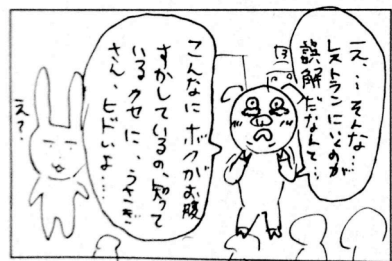 え、… そんな…
レストランにいくのが
誤解だなんて…
こんなにボクがお腹
すかしているの、知って
いるクセに、うさぎ
さん、ヒドいよ…
え?